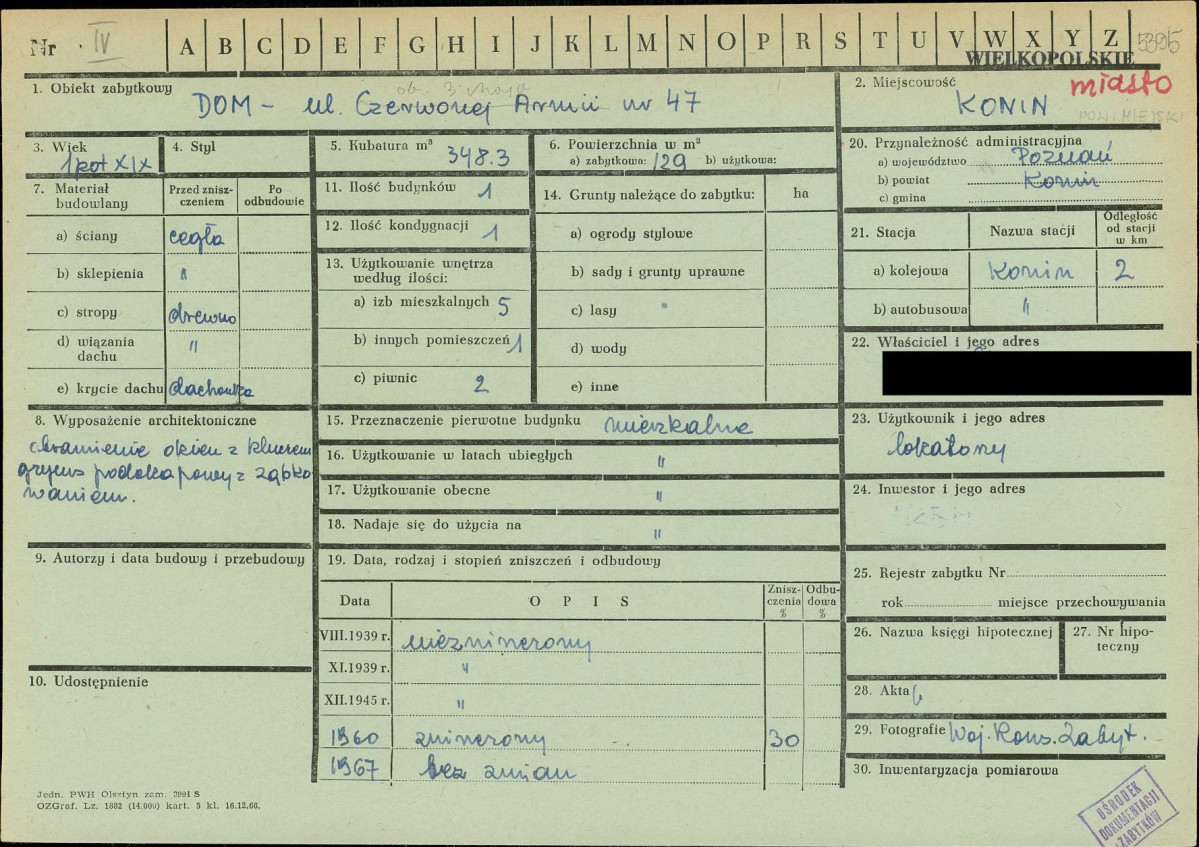 Nr IV A B C D E F G H I J K L M N O P R S T U V W X Y Z 5395
WIELKOPOLSKIE
1. Obiekt zabytkowy
ob. 3 maja
DOM – ul. Czerwonej Armii nr 47
2. Miejscowość
miasto
KONIN
POW. MIEJSKI
3. Wiek
1 poł XIX
4. Styl
5. Kubatura m³ 348.3
6. Powierzchnia w m³
a) zabytkowa: 129 b) użytkowa:
20. Przynależność administracyjna
a) województwo Poznań
b) powiat Konin
c) gmina
7. Materiał budowlany
Przed znisz-
czeniem
Po
odbudowie
a) ściany cegła
b) sklepienia "
c) stropy drewno
d) wiązania
dachu "
e) krycie dachu dachówka
11. Ilość budynków 1
12. Ilość kondygnacji 1
13. Użytkowanie wnętrza
według ilości:
a) izb mieszkalnych 5
b) innych pomieszczeń 1
c) piwnic 2
14. Grunty należące do zabytku: ha
a) ogrody stylowe
b) sady i grunty uprawne
c) lasy
d) wody
e) inne
21. Stacja Nazwa stacji
Odległość
od stacji
w km
a) kolejowa Konin 2
b) autobusowa "
22. Właściciel i jego adres
8. Wyposażenie architektoniczne
obramienie okien z kluczem
gzyms podokapowy z ząbko
waniem.
15. Przeznaczenie pierwotne budynku mieszkalne
16. Użytkowanie w latach ubiegłych "
17. Użytkowanie obecne "
18. Nadaje się do użycia na "
23. Użytkownik i jego adres
lokatorzy
24. Inwestor i jego adres
9. Autorzy i data budowy i przebudowy
10. Udostępnienie
19. Data, rodzaj i stopień zniszczeń i odbudowy
Data O P I S
Znisz-
czenia
%
Odbu-
dowa
%
VIII.1939 r. niezniszczony
XI.1939 r. "
XII.1945 r. "
1960 zniszczony 30
1967 bez zmian
25. Rejestr zabytku Nr
rok miejsce przechowywania
26. Nazwa księgi hipotecznej
27. Nr hipo-
teczny
28. Akta
29. Fotografie Woj. Kons. Zabyt.
30. Inwentaryzacja pomiarowa
Jedn. PWH Olsztyn zam. 2991 S
OZGraf. Lz. 1882 (14.000) kart. 5 kl. 16.12.66.
OŚRODEK
DOKUMENTACJI
ZABYTKÓW